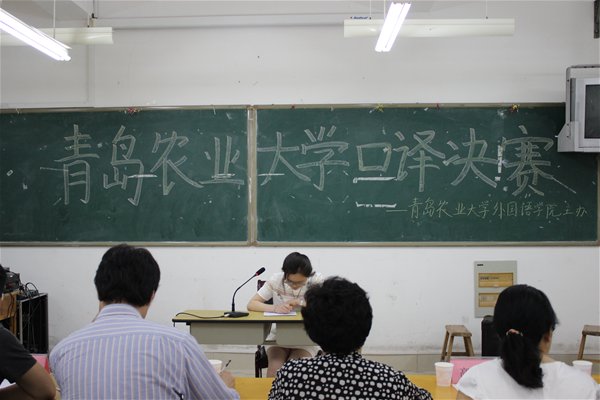 青岛农业大学口译决赛
——青岛农业大学外国语学院主办